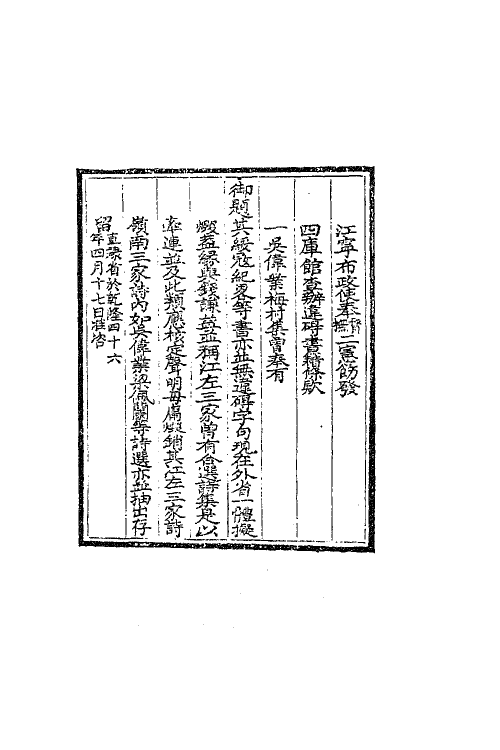 江寧布政使奉督撫二憲飭發
四庫館查辦違碍書籍條欵
一吳偉業梅村集曾奉有
御題其綏寇紀畧等書亦並無違碍字句現在外省一體擬
燬蓋緣與錢謙益並稱江左三家曾有合選詩集是以
牽連並及此類應核定聲明毋庸擬銷其江左三家詩
嶺南三家詩內如吳偉業梁佩蘭等詩選亦並抽出存
留直隸省於乾隆四十六年四月十七日准咨